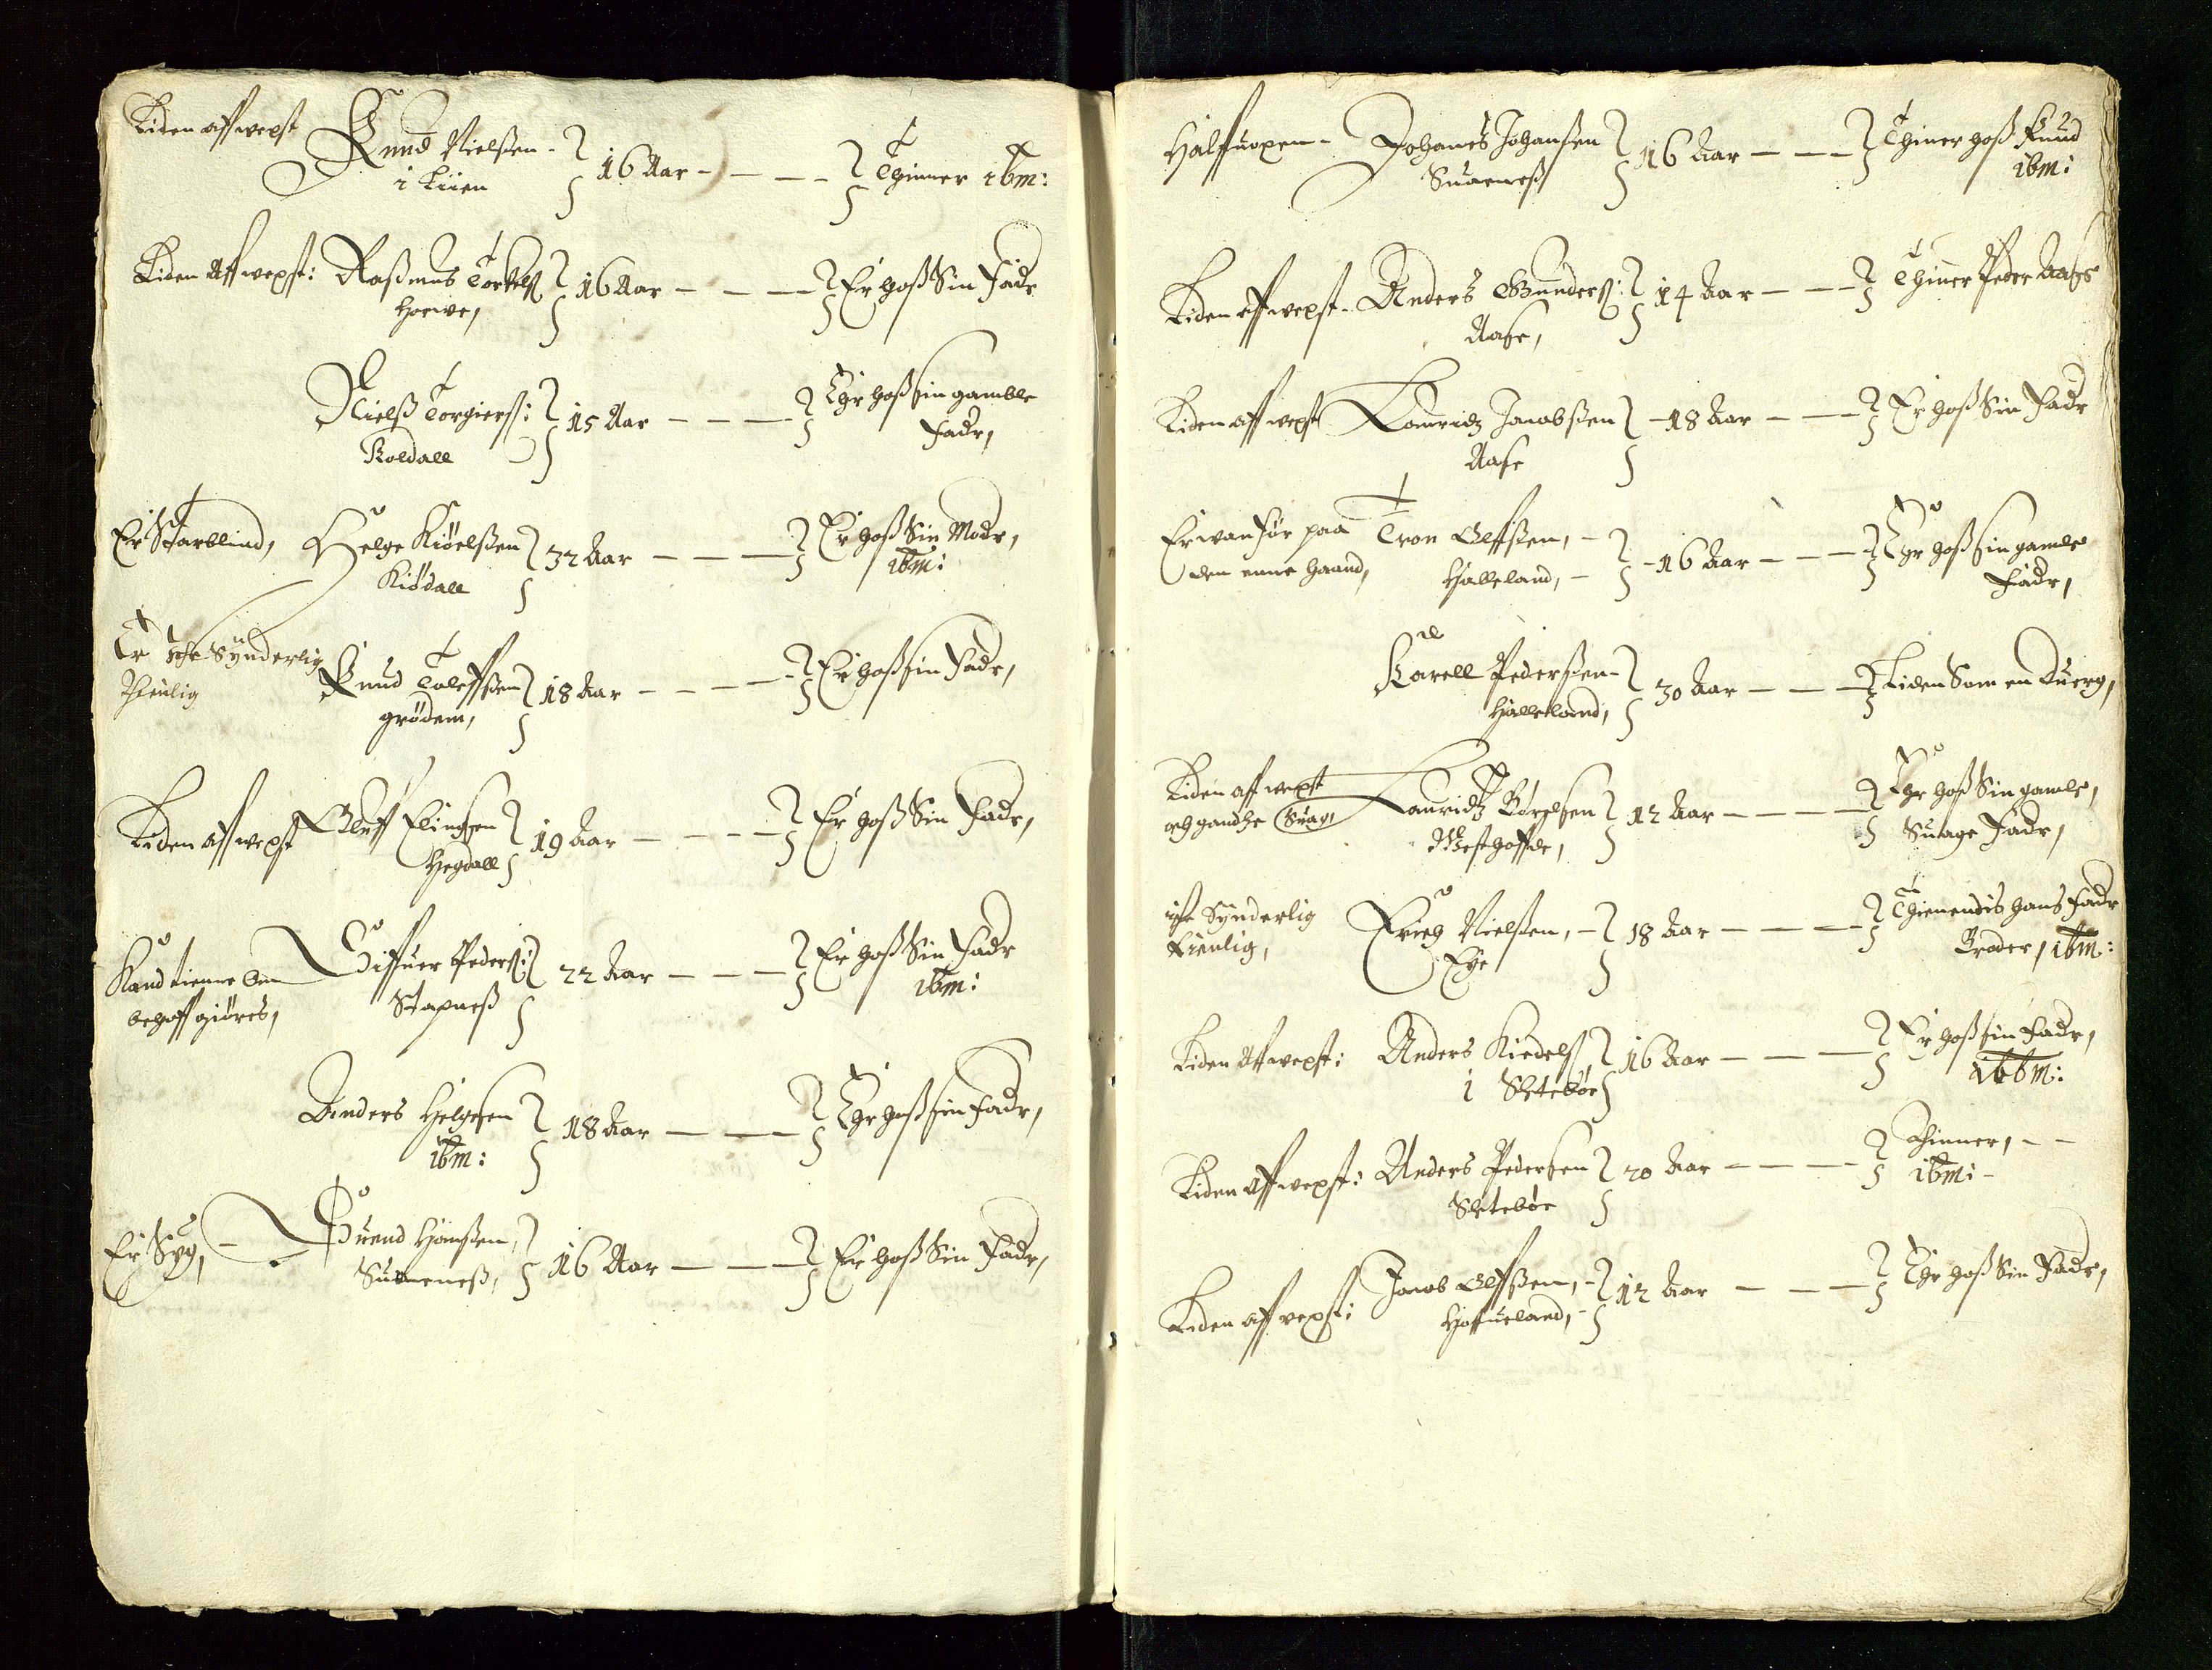 Liden aff wext
Knud Nielßen -
i Liien
16 Aar - - - -
Thinner ibm:
Liden Aff wext:
Raßmus Torkelß
Hoewe,
16 Aar - - -
Er hoß Sin Fadr
Nielß Torgierß:
Koldall
15 Aar - - - -
Ehr hoß sin gamble
Fadr,
Er Starblind,
Helge Kiøelßen
Kiødall
32 Aar - - - -
Er hoß Sin Modr,
ibm:
Er iche Synderlig
thienlig
Knud Toleffßen
grødem,
18 Aar - - - -
Er hoß sin Fadr,
Liden aff wext
Oluff Elingsen
Hegdall
19 Aar - - - -
Er hoß Sin Fadr,
Kand tienne om
behoff giøres,
Siffuer Pederß:
Stapneß
22 Aar - - -
Er hoß Sin Fadr
ibm:
Anders Helgesen
ibm:
18 Aar - - -
Ehr hoß sin Fadr,
Er Syg, -
Suend Hanßen,
Suaneneß,
16 Aar - - -
Er hoß Sin Fadr,
Halffuoxen -
Johanes Johanßen
Suaneneß
16 Aar - - -
Thiner hoß Knud
ibm:
Liden aff wext -
Anders Gunderß:
Aase,
14 Aar - - -
Thiner Peder Aase
Liden aff wext
Lauridz Jacobßen
Aase
18 Aar - - -
Er hoß Sin Fadr
Er wanfør paa
den enne haand,
Tron Olffßen, -
Halleland, -
16 Aar - - -
Ehr hoß sin gamle
Fadr,
Karell Pederßen -
Halleland,
30 Aar - - -
Liden Som en Duerg,
Liden aff wext
och gandze Suag,
Lauridz Børgesen
Westhoffde,
12 Aar - - - -
Ehr hoß Sin gamle,
Suage Fadr,
iche Synderlig
tienlig,
Erich Nielßen, -
Eye
18 Aar - - - -
Thienendis hans Fadr
Broder, ibm:
Liden Aff wext:
Anders Kiedelß
i Sletebøe
16 Aar - - -
Er hoß sin Fadr,
ibbm:
Liden Aff wext:
Anders Pedersen
Sletebøe
20 Aar - - - -
Thinner, - -
ibm: -
Liden aff wext:
Jacob Olffßen, -
Hoffueland, -
12 Aar - - -
Ehr hoß Sin Fadr,